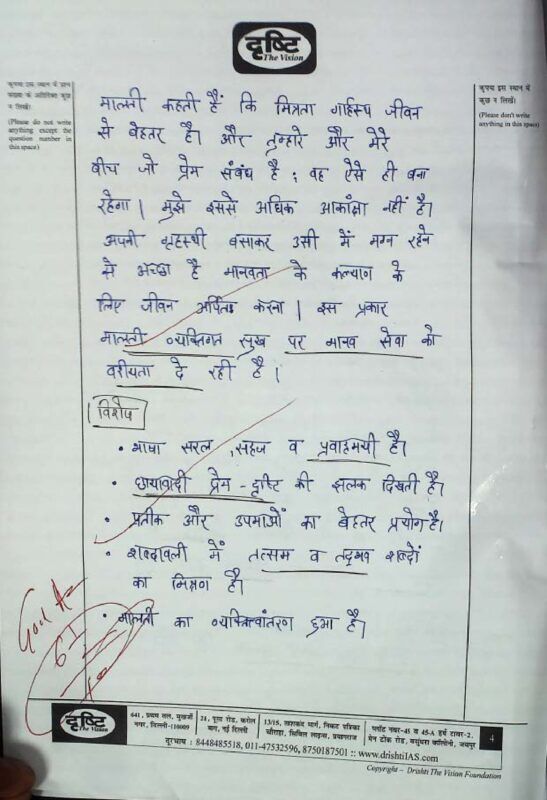 दृष्टि
The Vision
कृपया इस स्थान में प्रश्न
संख्या के अतिरिक्त कुछ
न लिखें।
(Please do not write
anything except the
question number in
this space)
कृपया इस स्थान में
कुछ न लिखें।
(Please don't write
anything in this space)
मालती कहती हैं कि मित्रता गार्हस्थ जीवन
से बेहतर है। और तुम्हारे और मेरे
बीच जो प्रेम संबंध है; वह ऐसे ही बना
रहेगा। मुझे इससे अधिक आकांक्षा नहीं है।
अपनी गृहस्थी बसाकर उसी में मग्न रहने
से अच्छा है मानवता के कल्याण के
लिए जीवन अर्पित करना। इस प्रकार
मालती व्यक्तिगत सुख पर मानव सेवा को
वरीयता दे रही है।
विशेष
• भाषा सरल, सहज व प्रवाहमयी है।
• छायावादी प्रेम-दृष्टि की झलक दिखती है।
• प्रतीक और उपमाओं का बेहतर प्रयोग है।
• शब्दावली में तत्सम व तद्भव शब्दों
का मिश्रण है।
• मालती का व्यक्तित्वांतरण हुआ है।
Good
दृष्टि
The Vision
641, प्रथम तल, मुखर्जी
नगर, दिल्ली-110009
21, पूसा रोड, करोल
बाग, नई दिल्ली
13/15, ताशकंद मार्ग, निकट पत्रिका
चौराहा, सिविल लाइन्स, प्रयागराज
प्लॉट नंबर-45 व 45-A हर्ष टावर-2,
मेन टोंक रोड, वसुंधरा कॉलोनी, जयपुर
4
दूरभाष : 8448485518, 011-47532596, 8750187501 :: www.drishtiIAS.com
Copyright – Drishti The Vision Foundation